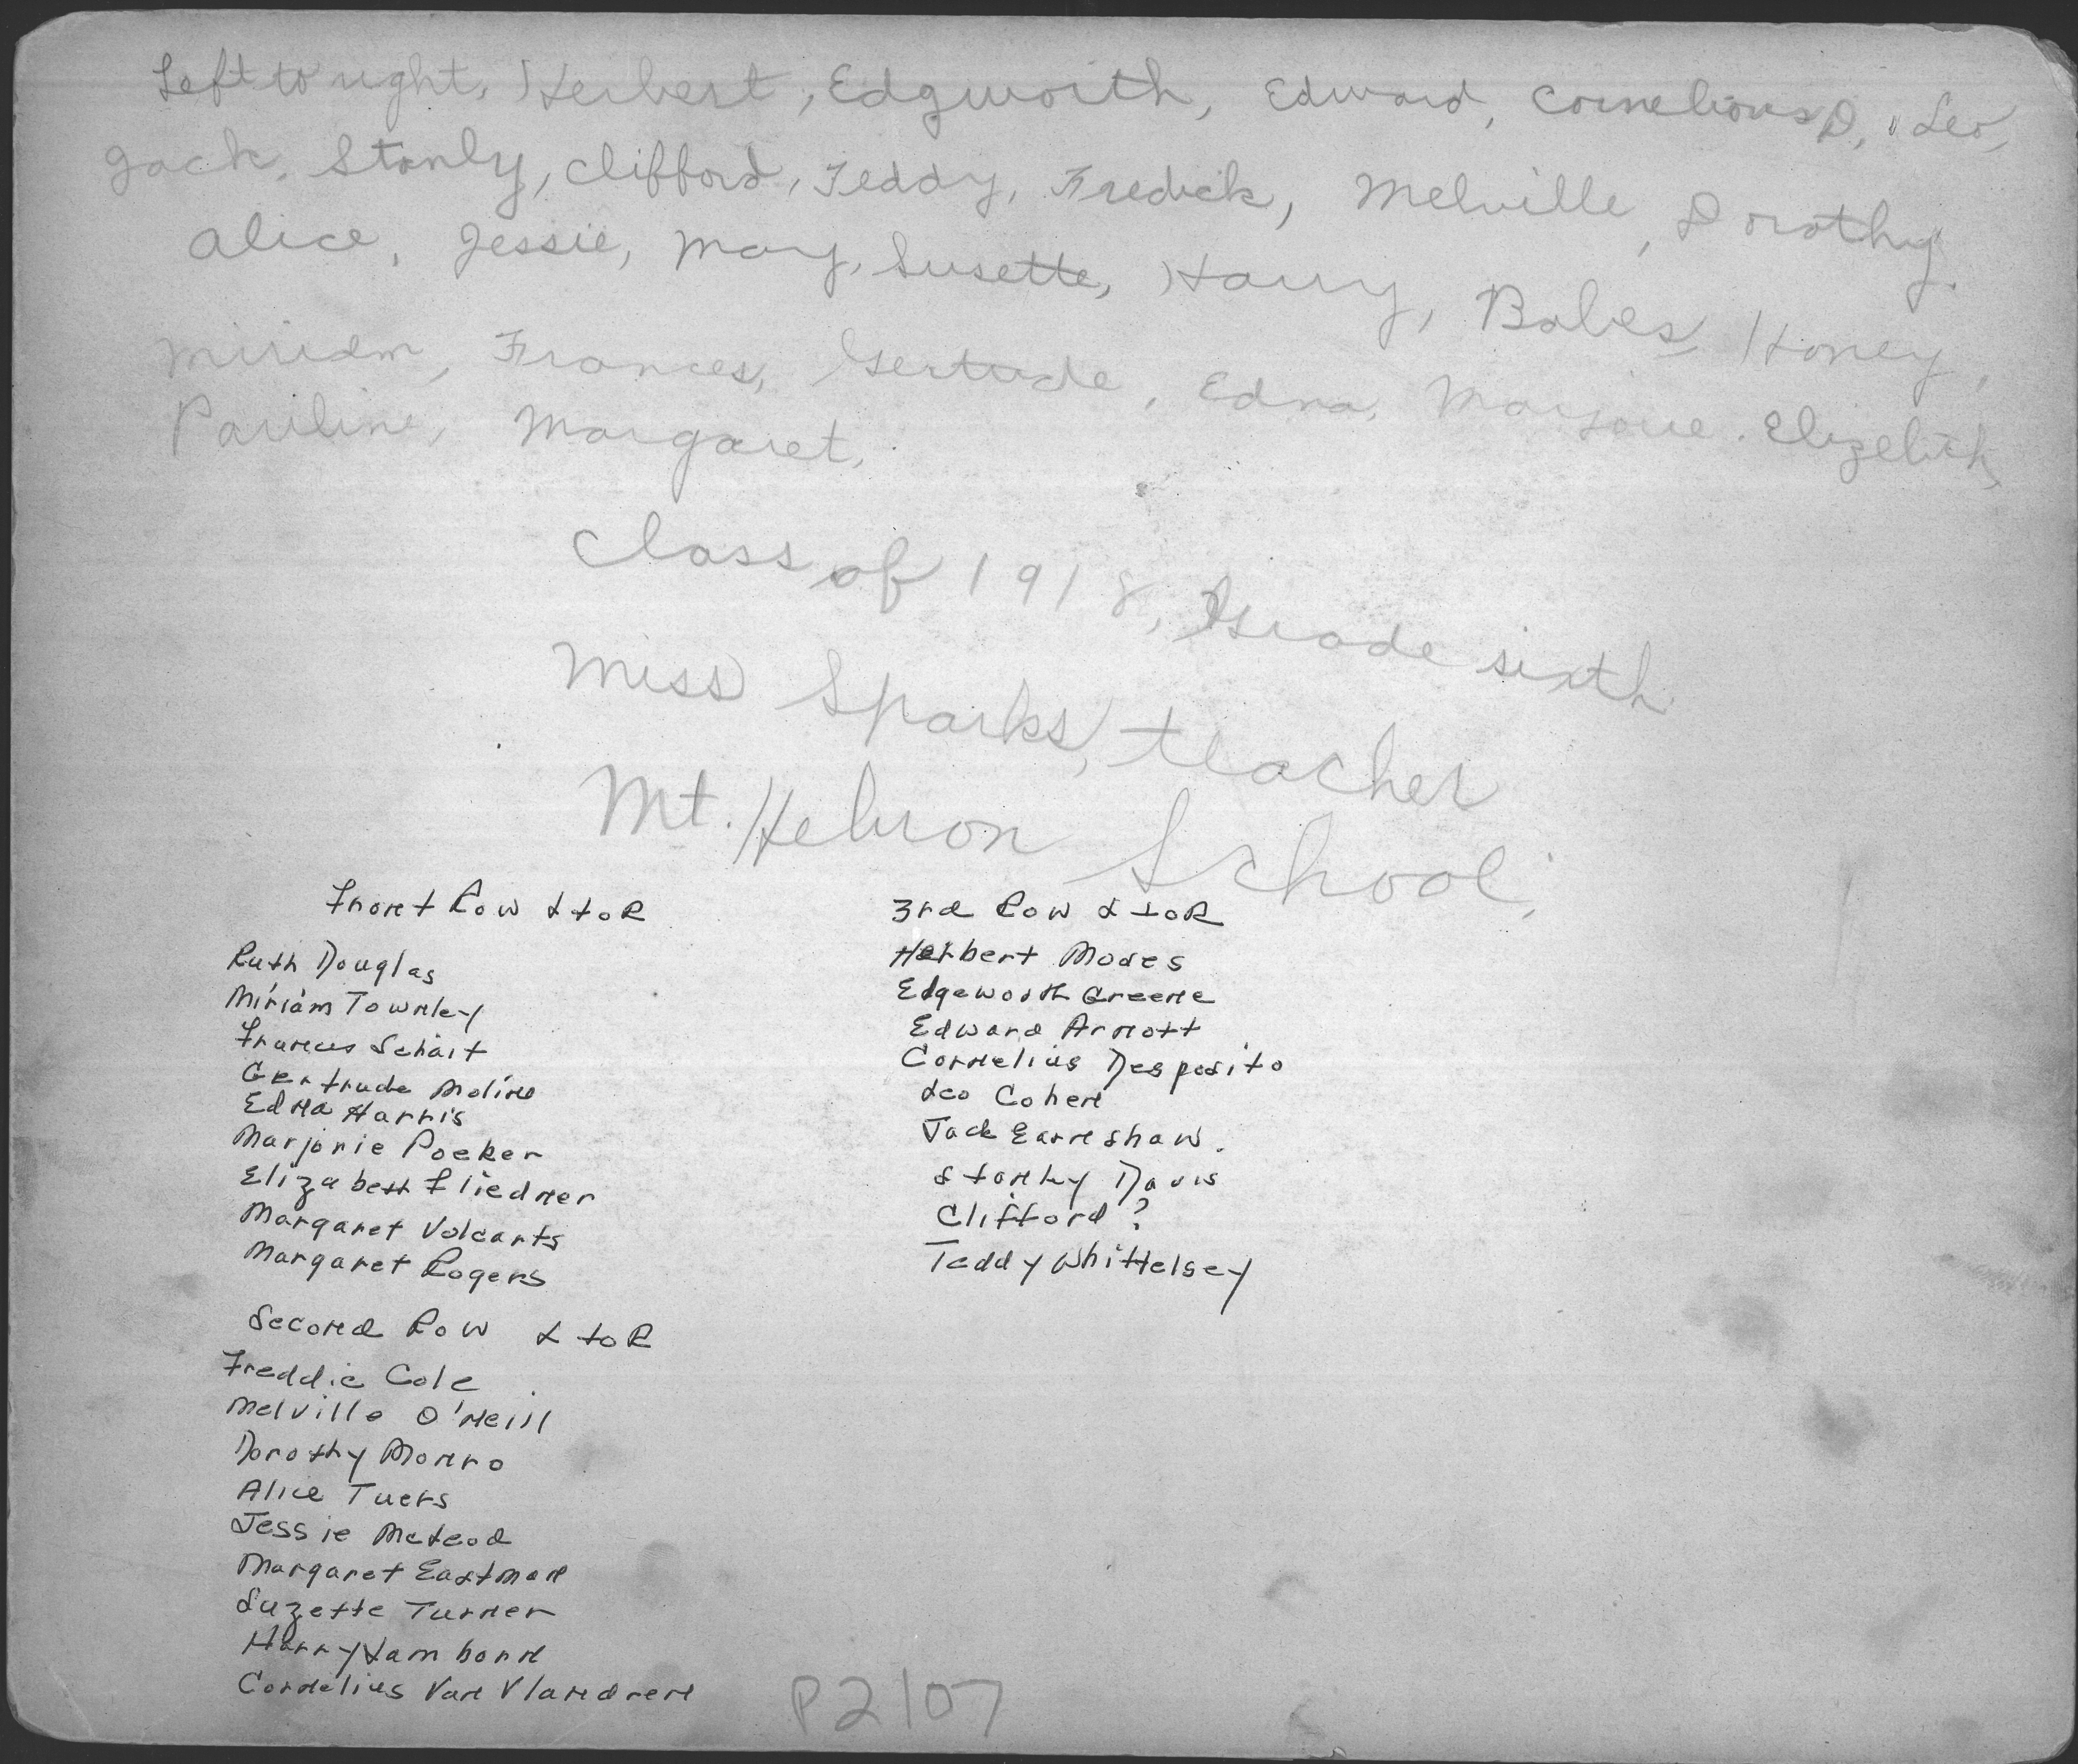 Left to right, Herbert, Edgworth, Edward, Cornelious D, Leo,
Jack, Stanly, Clifford, Teddy, Fredick, Melville, Dorothy.
Alice, Jessie, Mary, Susette, Harry, Babes, Honey,
Miriam, Frances, Gertude, Edna, Marjorie. Elizebith,
Pauline, Margaret.
Class of 1918, Grade sixth
Miss Sparks, teacher
Mt. Hebron School.
Front Row L to R
Ruth Douglas
Miriam Townley
Frances Schait
Gertrude Moline
Edna Harris
Marjorie Poeker
Elizabeth Fliedner
Margaret Volcarts
Margaret Rogers
Second Row L to R
Freddie Cole
Melville O'Neill
Dorothy Monro
Alice Tuers
Jessie McLeod
Margaret Eastman
Suzette Turner
Harry Lamborn
Cornelius Van Vlandren
3rd Row L to R
Herbert Moses
Edgeworth Greene
Edward Arnott
Cornelius Desposito
Leo Cohen
Jack Earnshaw.
Stanley Davis
Clifford ?
Teddy Whittelsey
P2107